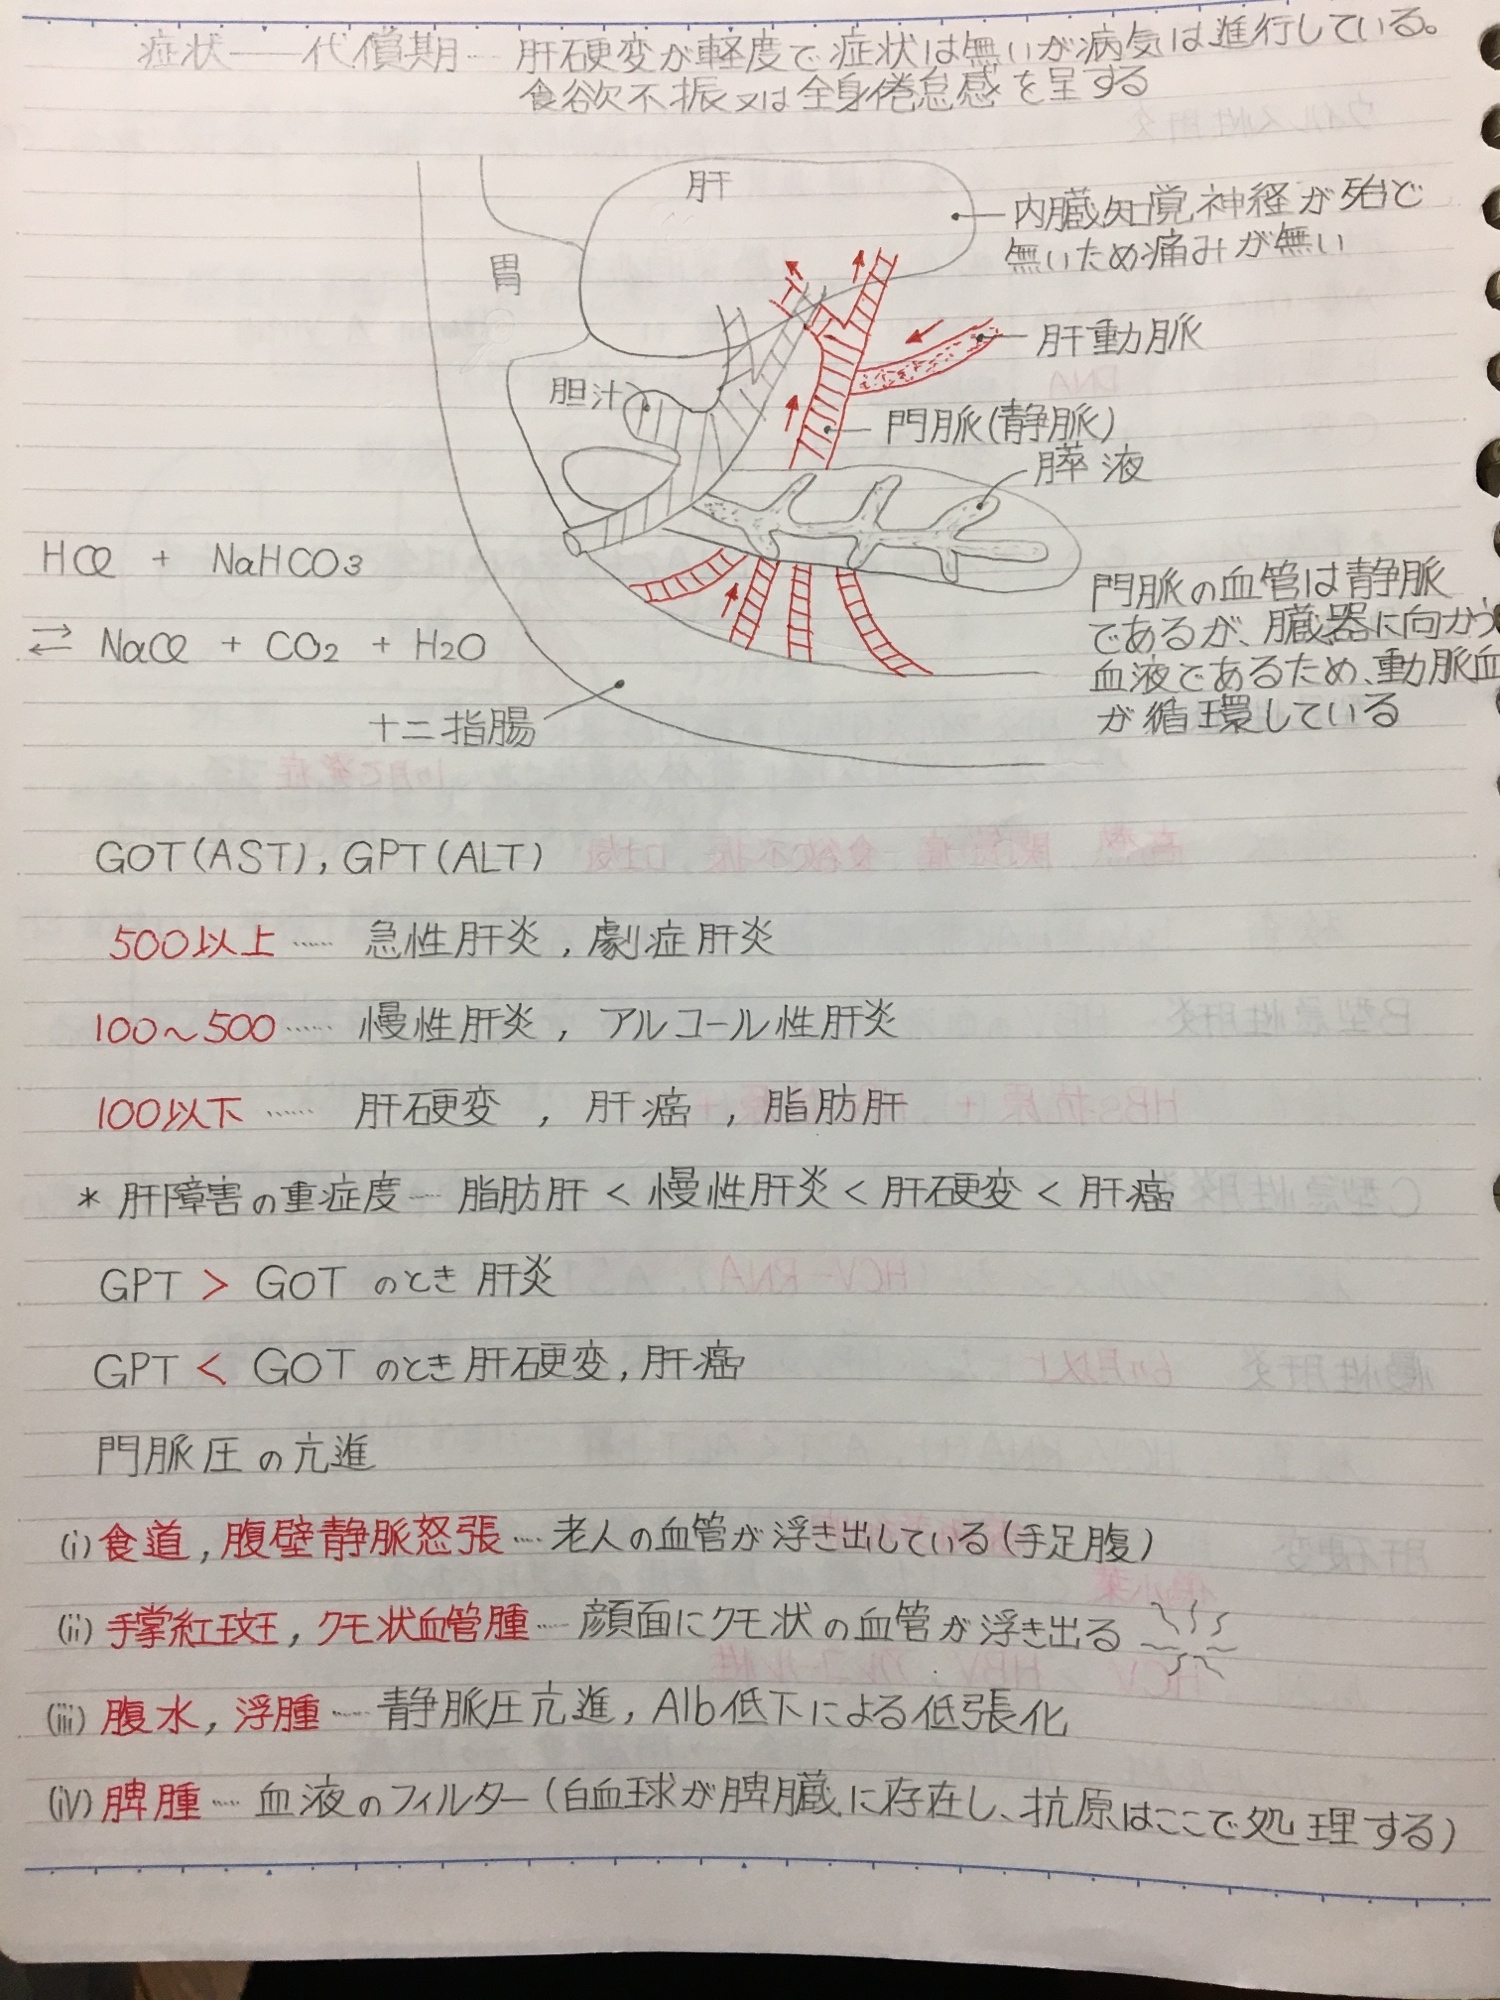 症状――代償期…肝硬変が軽度で症状は無いが病気は進行している。
食欲不振又は全身倦怠感を呈する
肝
内臓知覚神経が殆ど
無いため痛みが無い
胃
肝動脈
胆汁
門脈(静脈)
膵液
HCl + NaHCO3
⇄ NaCl + CO2 + H2O
門脈の血管は静脈
であるが、臓器に向かう
血液であるため、動脈血
が循環している
十二指腸
GOT(AST), GPT(ALT)
500以上 …… 急性肝炎, 劇症肝炎
100〜500 …… 慢性肝炎, アルコール性肝炎
100以下 …… 肝硬変, 肝癌, 脂肪肝
* 肝障害の重症度… 脂肪肝 < 慢性肝炎 < 肝硬変 < 肝癌
GPT > GOT のとき 肝炎
GPT < GOT のとき 肝硬変, 肝癌
門脈圧の亢進
(i) 食道, 腹壁静脈怒張…老人の血管が浮き出している(手足腹)
(ii) 手掌紅斑, クモ状血管腫…顔面にクモ状の血管が浮き出る
(iii) 腹水, 浮腫……静脈圧亢進, Alb低下による低張化
(iv) 脾腫… 血液のフィルター(白血球が脾臓に存在し、抗原はここで処理する)